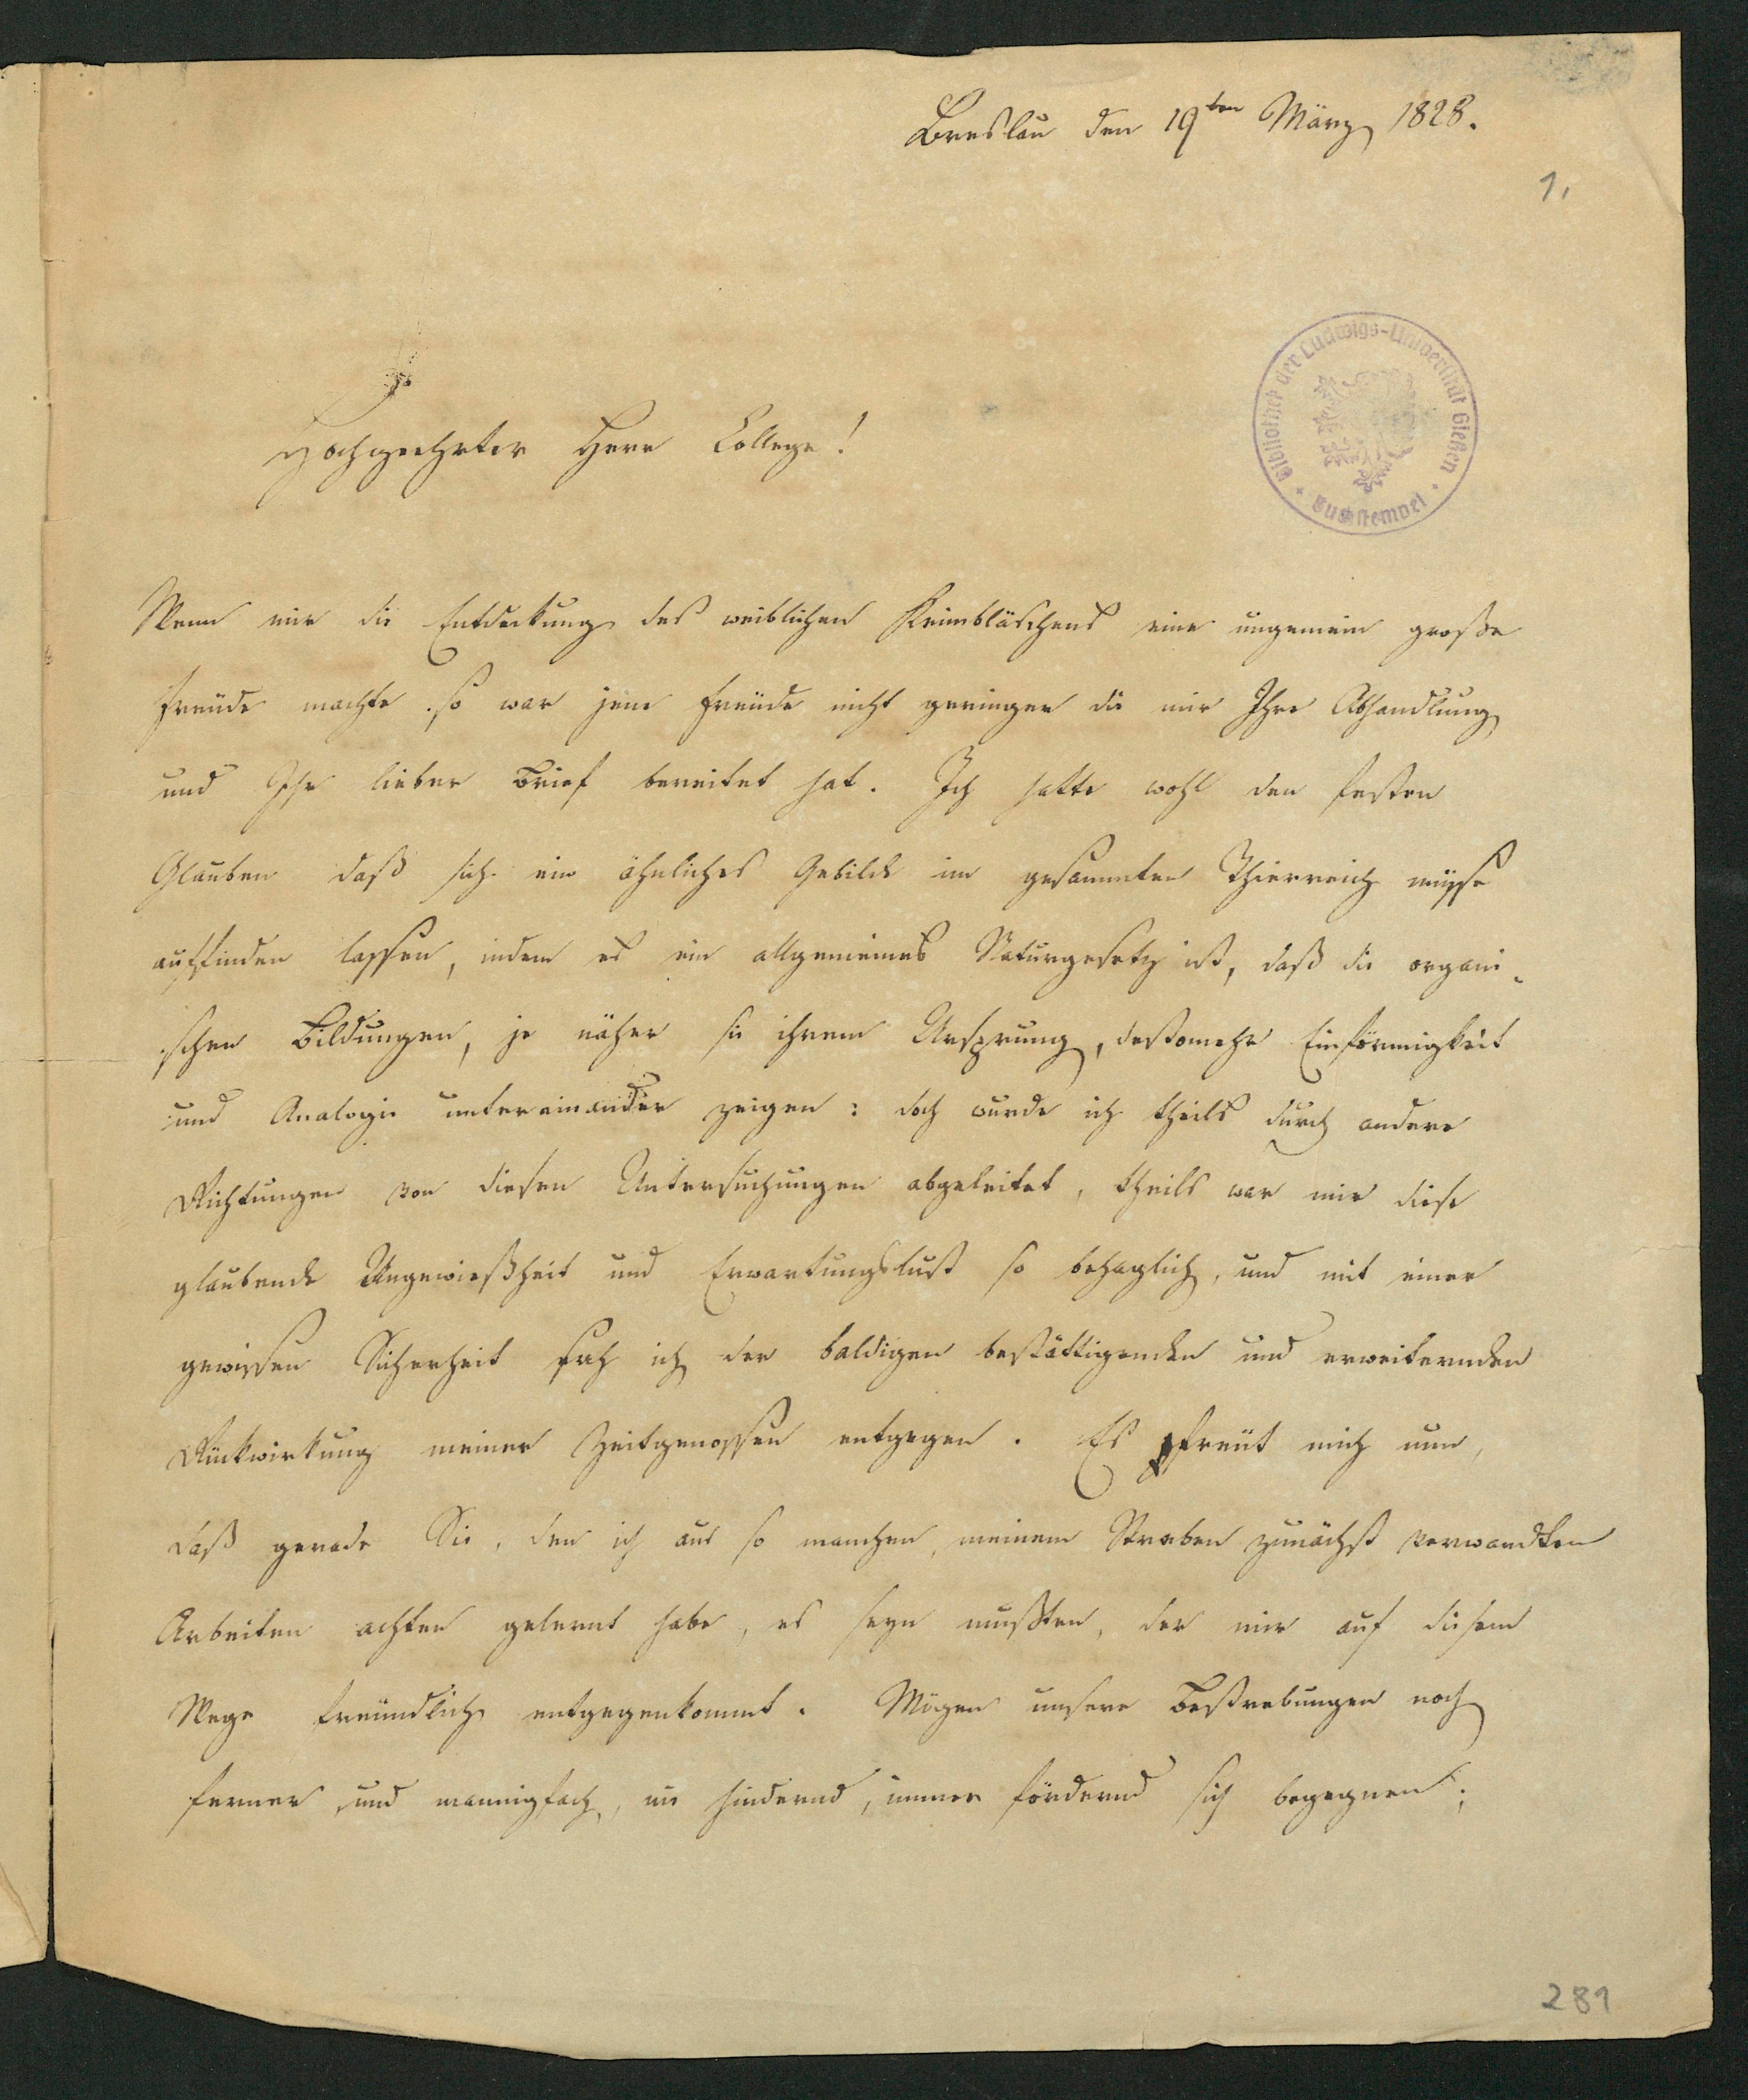 Breslau den 19ten März 1828.
1,
Hochgeehrter Herr College!
Bibliothek der Ludwigs-Universität Gießen
Buchstempel
Wenn mir die Entdeckung des weiblichen Keimbläschens eine ungemein große
Freude machte so war jene Freude nicht geringer die mir Ihre Abhandlung
und Ihr lieber Brief bereitet hat. Ich hatte wohl den festen
Glauben daß sich ein ähnliches Gebilde im gesammten Thierreich müsse
auffinden lassen, indem es ein allgemeines Naturgesetz ist, daß die organi-
schen Bildungen, je näher sie ihrem Ursprung, destomehr Einförmigkeit
und Analogie untereinander zeigen: doch wurde ich theils durch andere
Richtungen von diesen Untersuchungen abgeleitet, theils war mir diese
glaubende Ungewießheit und Erwartungslust so behaglich, und mit einer
gewissen Sicherheit sah ich der baldigen bestättigenden und erweiternden
Rückwirkung meiner Zeitgenossen entgegen. Es freut mich nun,
daß gerade Sie, den ich aus so manchen, meinem Streben zunächst verwandten
Arbeiten achten gelernt habe, es seyn mußten, der mir auf diesem
Wege freundlich entgegenkommt. Mögen unsere Bestrebungen noch
ferner und mannigfach, nie hindernd, immer fördernd sich begegnen;
281